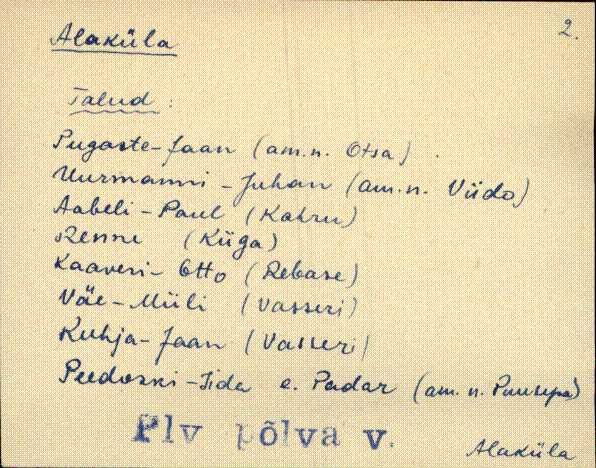 2.
Alaküla
Talud:
Pugaste-Jaan (am.n. Otsa)
Uurmanni-Juhan (am.n. Viido)
Aabeli-Paul (Kahru)
Renne (Küga)
Kaaveri-Otto (Rebase)
Väe-Miili (Vasseri)
Kuhja-Jaan (Vasseri)
Peedoski-Iida e. Padar (am.n. Puusepa)
Plv põlva v.
Alaküla